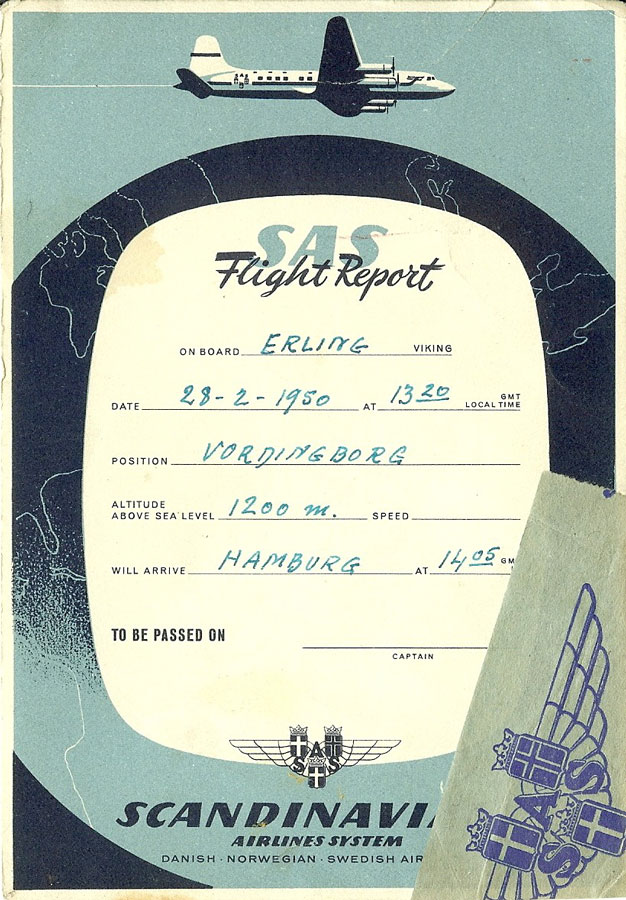 SAS
Flight Report
ON BOARD ERLING VIKING
DATE 28-2-1950 AT 13 20 GMT
LOCAL TIME
POSITION VORDINGBORG
ALTITUDE
ABOVE SEA LEVEL 1200 m. SPEED
WILL ARRIVE HAMBURG AT 14 05 GM
TO BE PASSED ON
CAPTAIN
SAS
SCANDINAVI
AIRLINES SYSTEM
DANISH · NORWEGIAN · SWEDISH AIR
SAS